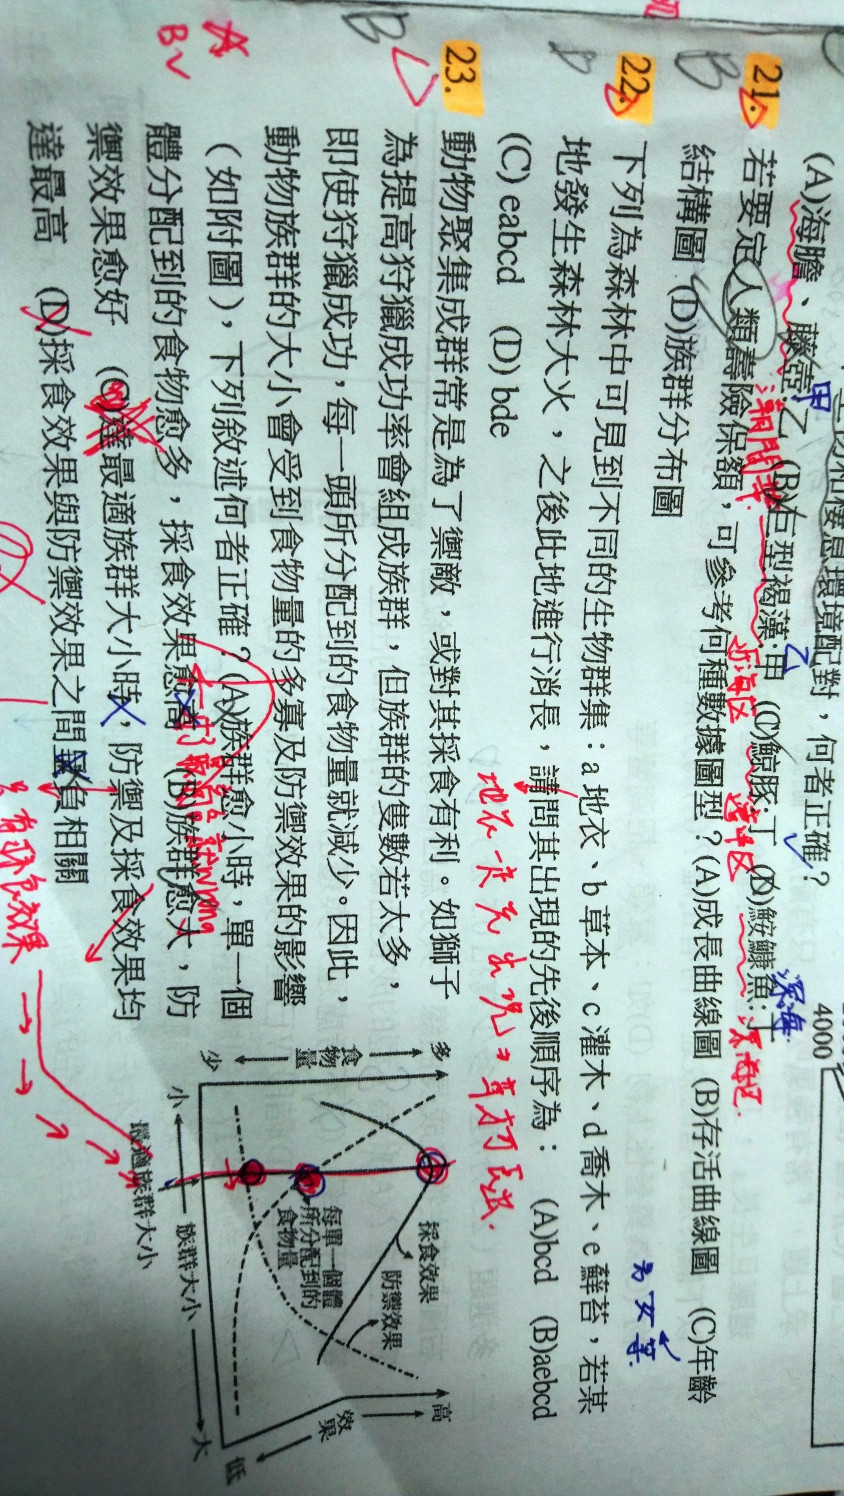 生物和棲息環境配對，何者正確？
(A)海膽、藤壺:乙 (B)巨型褐藻:甲 (C)鯨豚:丁 (D)鮟鱇魚:丁
甲
乙
深海
近海区
4000
21. 若要定人類壽險保額，可參考何種數據圖型？(A)成長曲線圖 (B)存活曲線圖 (C)年齡
結構圖 (D)族群分布圖
B
22. 下列為森林中可見到不同的生物群集：a地衣、b草本、c灌木、d喬木、e蘇苔，若某
地發生森林大火，之後此地進行消長，請問其出現的先後順序為： (A)bcd (B)aebcd
(C) eabcd (D) bde
23. 動物聚集成群常是為了禦敵，或對其採食有利。如獅子
為提高狩獵成功率會組成族群，但族群的隻數若太多，
即使狩獵成功，每一頭所分配到的食物量就減少。因此，
動物族群的大小會受到食物量的多寡及防禦效果的影響
（如附圖），下列敘述何者正確？(A)族群愈小時，單一個
體分配到的食物愈多，採食效果愈高 (B)族群愈大，防
禦效果愈好 (C)達最適族群大小時，防禦及採食效果均
達最高 (D)採食效果與防禦效果之間呈負相關
B
B
只有採食效果
多
食物量
少
高
效果
低
採食效果
防禦效果
每單一個體
所分配到的
食物量
小
族群大小
大
最適族群大小